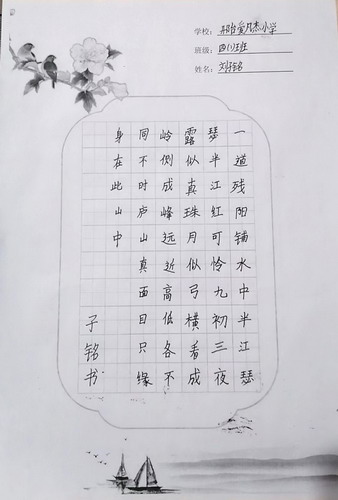 学校：小学
班级：四(1)班
姓名：刘子铭
一道残阳铺水中半江瑟
瑟半江红可怜九初三夜
露似真珠月似弓横看成
岭侧成峰远近高低各不
同不时庐山真面目只缘
身在此山中
子铭书